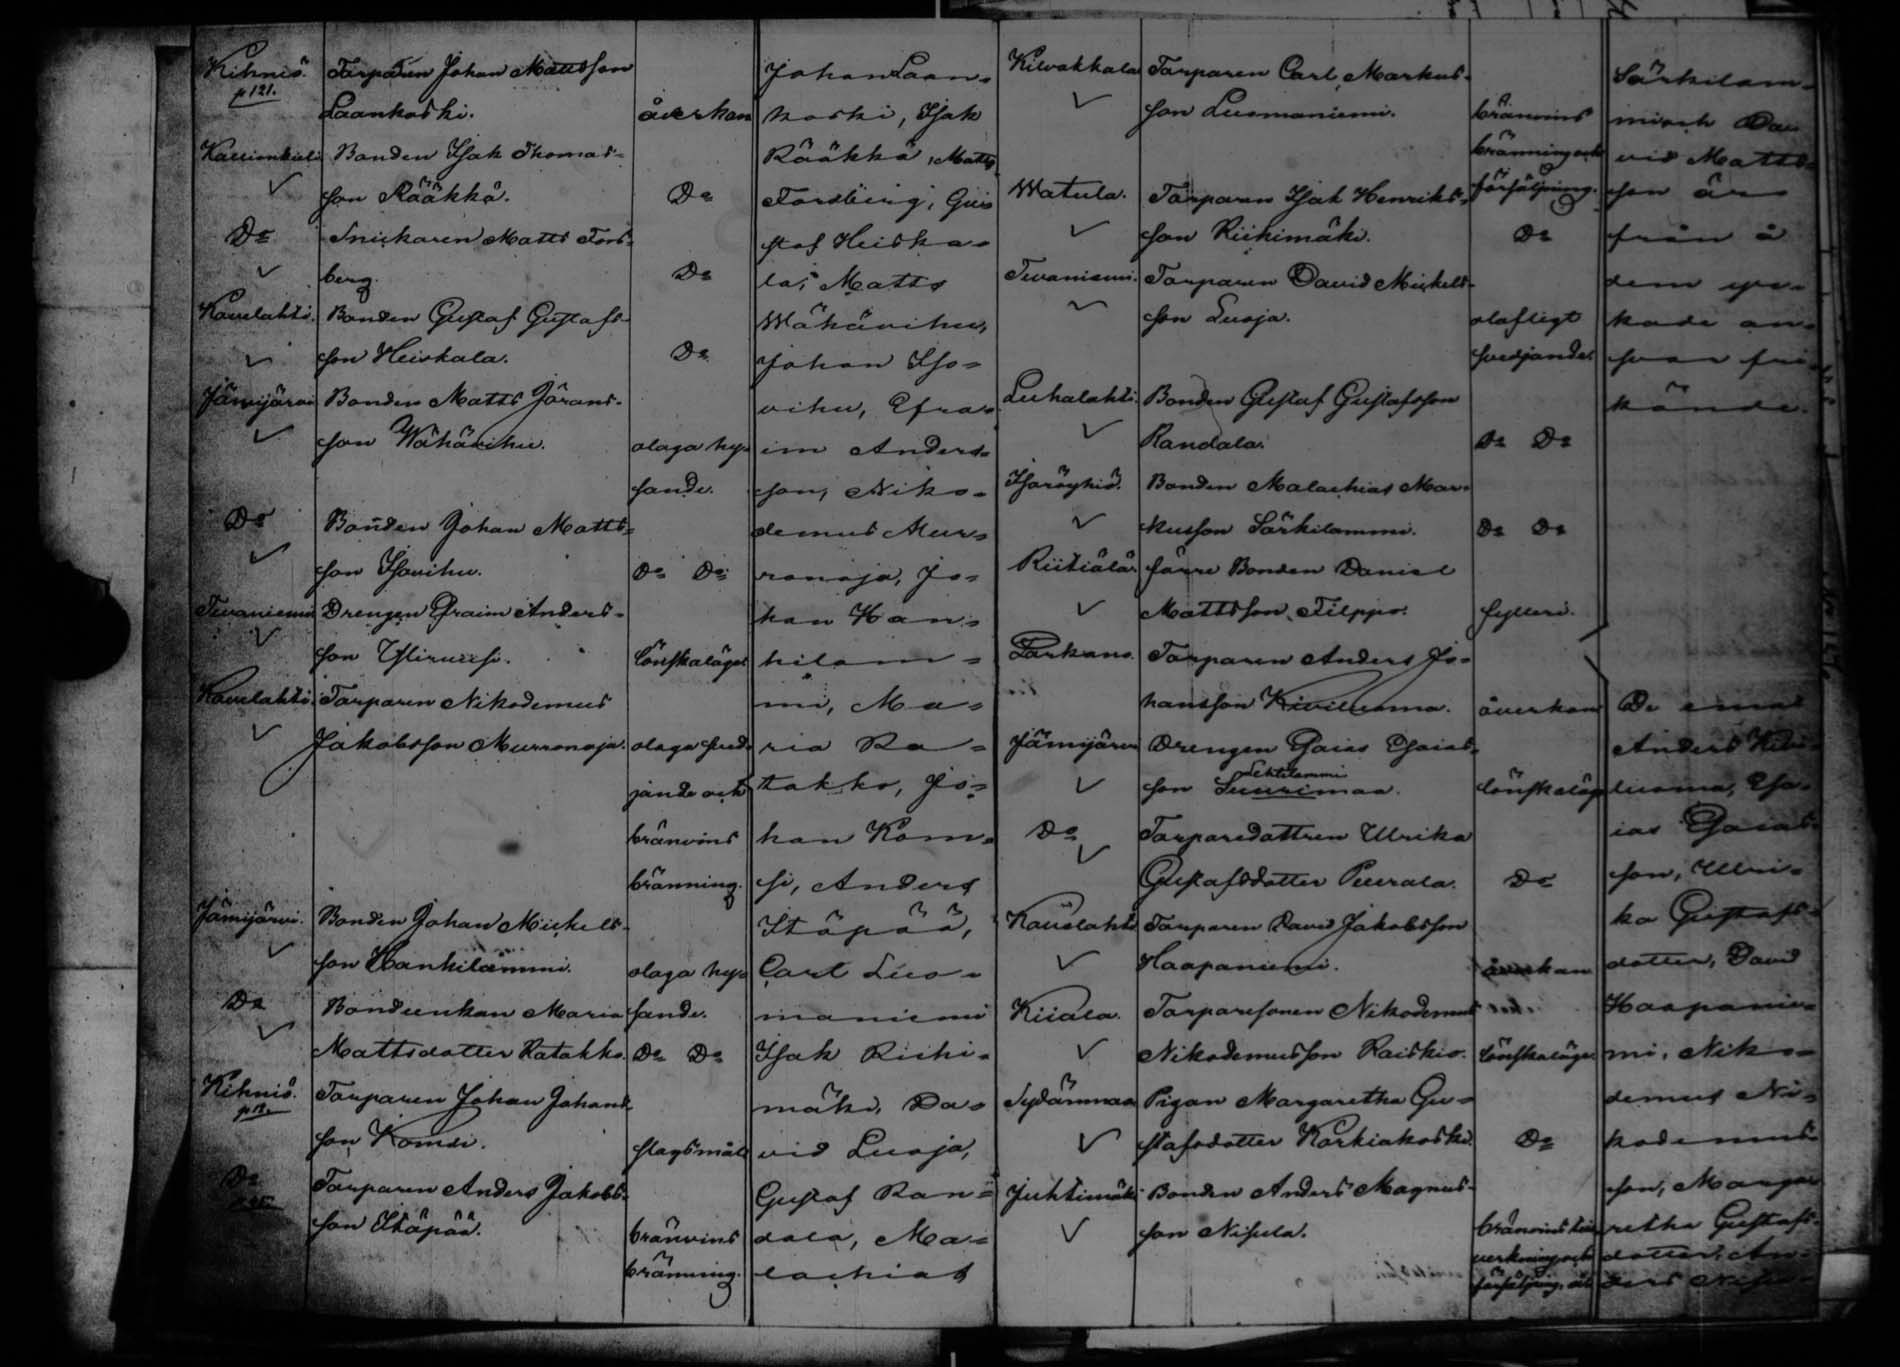 Kihniö. Torparen Johan Mattsson
p 121. Laankoski. åverkan
Banden Isak Thomas-
son Rääkkö. Do
Do Snickaren Matts Fors-
berg. Do
Kauelahti. Bonden Gustaf Gustafs-
son Heiskala. Do
Jämijärvi Bonden Matts Jörans-
son Wähävihu. olaga hy-
sande.
Do Bonden Johan Matts-
son Isovihu. Do Do
Drengen Efraim Anders-
son lönskaläge
Kauelahti. Torparen Nikodemus
Jakobsson Murronoja. olaga sved-
jande och
bränvins
bränning.
Jämijärvi. Bonden Johan Mickels-
son Hankilammi. olaga hy-
Do Bondeenkan Maria sande.
Mattsdotter Ratakko. Do Do
Kihniö. Torparen Johan Johans-
son Komsi. slagsmål
Do Torparen Anders Jakobs-
son Itäpää. bränvins
bränning.
Johan Laan-
koski, Isak
Rääkkö, Matts
Forsberg, Gus
staf Heiska-
la, Matts
Wähävihu,
Johan Iso-
vihu, Efra-
im Anders-
son, Niko-
demus Mur-
ronoja, Jo-
han Han-
kilam-
mi, Ma-
ria Ra-
takko, Jo-
han Kom-
si, Anders
Itäpää,
Carl Luo-
maniemi
Isak Riihi-
mäki, Da-
vid Luoja,
Gustaf Ran-
dala, Ma-
lachias
Kilvakkala Torparen Carl Markus-
son Luomaniemi. bränvins
bränning och
Watula. Torparen Isak Henriks- försäljning.
son Riihimäki. Do
Torparen David Mickels-
son Luoja. olofligt
svedjande.
Luhalahti. Bonden Gustaf Gustafsson
Randala. Do Do
Isoröyhiö. Bonden Malachias Mar-
kusson Särkilammi. Do Do
Riitiälä. förre Bonden Daniel
Mattsson Filppo. fylleri.
Parkano. Torparen Anders Jo-
hansson Kiviluoma. åverkan
Jämijärvi Drengen Esaias Esaias-
Lehtilammi
son Suurimaa. lönskaläge
Do Torparedottren Ulrika
Gustafsdotter Peurala. Do
Kauelahti Torparen David Jakobsson
Haapaniemi. åverkan
Kiiala. Torparesonen Nikodemus
Nikodemusson Raiskio. lönskaläge.
Sydänmaa Pigan Margaretha Gu-
stafsdotter Karkiakoski. Do
Juhtimäki Bonden Anders Magnus-
son Nisula. bränvins till-
verkning och
försäljning
Särkilam-
mi och Da-
vid Matts-
son äro
från å
dem yr-
kade an-
svar fri-
kände.
De
Anders Kivi-
luoma, Esa-
ias Esaias-
son, Ulri-
ka Gustafs-
dotter, David
Haapanie-
mi, Niko-
demus Ni-
kodemus-
son, Marga-
retha Gustafs-
dotter, An-
ders Nisu-